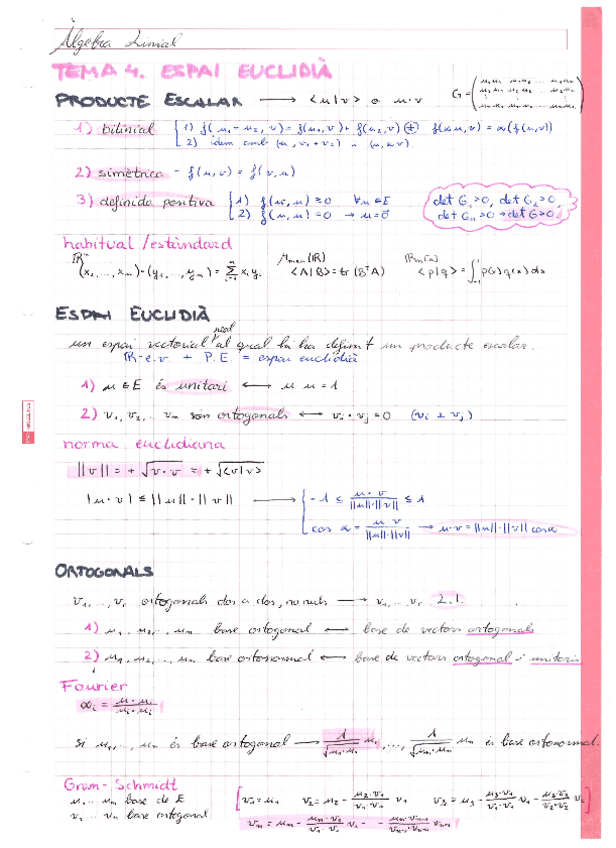 Àlgebra Linial
TEMA 4. ESPAI EUCLIDIÀ
PRODUCTE ESCALAR ⟶ <u|v> o u·v
G =
1) bilinial
1) f(u₁-u₂, v) = f(u₁,v) + f(u₂,v) ⊕ f(αu,v) = α(f(u,v))
2) idem amb (u, v₁+v₂) u (u, αv)
2) simètrica - f(u,v) = f(v,u)
3) definida positiva
1) f(u,u) ≥ 0 ∀u∈E
2) f(u,u) = 0 → u = 0
det G₁>0, det G₂>0,
det Gₙ>0 → det G>0
habitual / estàndard
ℝⁿ
(x₁,...,xₙ)·(y₁,...,yₙ) = Σ xᵢyᵢ
Mₘₓₙ(ℝ)
<A|B> = tr(BᵗA)
ℝₙ[x]
<p|q> = ∫₋₁¹ p(x)q(x)dx
ESPAI EUCLIDIÀ
un espai vectorial real al qual hi ha definit un producte escalar.
ℝ-e.v. + P.E. = espai euclidià
1) u∈E és unitari ⟷ u·u = 1
2) v₁, v₂,... vₙ són ortogonals ⟷ vᵢ·vⱼ = 0 (vᵢ ⊥ vⱼ)
norma euclidiana
||v|| = +√v·v = +√<v|v>
|u·v| ≤ ||u||·||v||
-1 ≤ u·v / ||u||·||v|| ≤ 1
cos α = u·v / ||u||·||v|| → u·v = ||u||·||v|| cosα
ORTOGONALS
v₁,...,vᵣ ortogonals dos a dos, no nuls ⟶ v₁,...,vᵣ l.i.
1) u₁, u₂,..., uₙ base ortogonal ⟷ base de vectors ortogonals
2) u₁, u₂,..., uₙ base ortonormal ⟷ base de vectors ortogonal i unitaris
Fourier
αᵢ = u·uᵢ / uᵢ·uᵢ
si u₁,..., uₙ és base ortogonal ⟶ 1/√u₁·u₁ u₁,..., 1/√uₙ·uₙ uₙ és base ortonormal.
Gram-Schmidt
u₁... uₙ base de E
v₁... vₙ base ortogonal
v₁ = u₁ v₂ = u₂ - u₂·v₁/v₁·v₁ v₁ v₃ = u₃ - u₃·v₁/v₁·v₁ v₁ - u₃·v₂/v₂·v₂ v₂
vₙ = uₙ - uₙ·v₁/v₁·v₁ v₁ - ... - uₙ·vₙ₋₁/vₙ₋₁·vₙ₋₁ vₙ₋₁